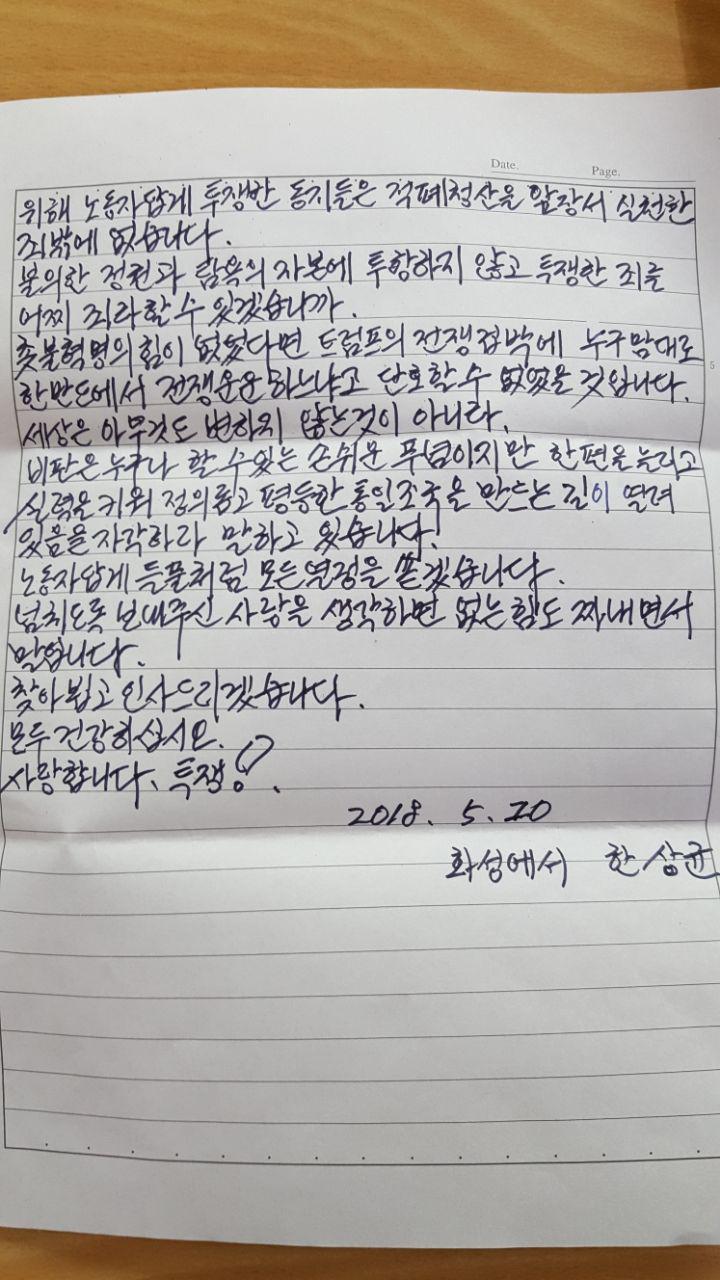 Date. Page.
위해 노동자답게 투쟁한 동지들은 적폐청산을 앞장서 실천한
죄밖에 없습니다.
불의한 정권과 탐욕의 자본에 투항하지 않고 투쟁한 죄를
어찌 죄라 할 수 있겠습니까.
촛불혁명의 힘이 없었다면 트럼프의 전쟁겁박에 누구맘대로
한반도에서 전쟁운운 하느냐고 단호할 수 없었을 것입니다.
세상은 아무것도 변하지 않는것이 아니라,
비판은 누구나 할 수 있는 손쉬운 푸념이지만 한편을 늘리고
실력을 키워 정의롭고 평등한 통일조국을 만드는 길이 열려
있음을 자각하라 말하고 있습니다!
노동자답게 들풀처럼 모든열정을 쏟겠습니다.
넘치도록 보내주신 사랑을 생각하면 없는힘도 짜내면서
말입니다.
찾아뵙고 인사드리겠습니다.
모두 건강하십시오.
사랑합니다. 투쟁!
2018. 5. 20
화성에서 한상균
5